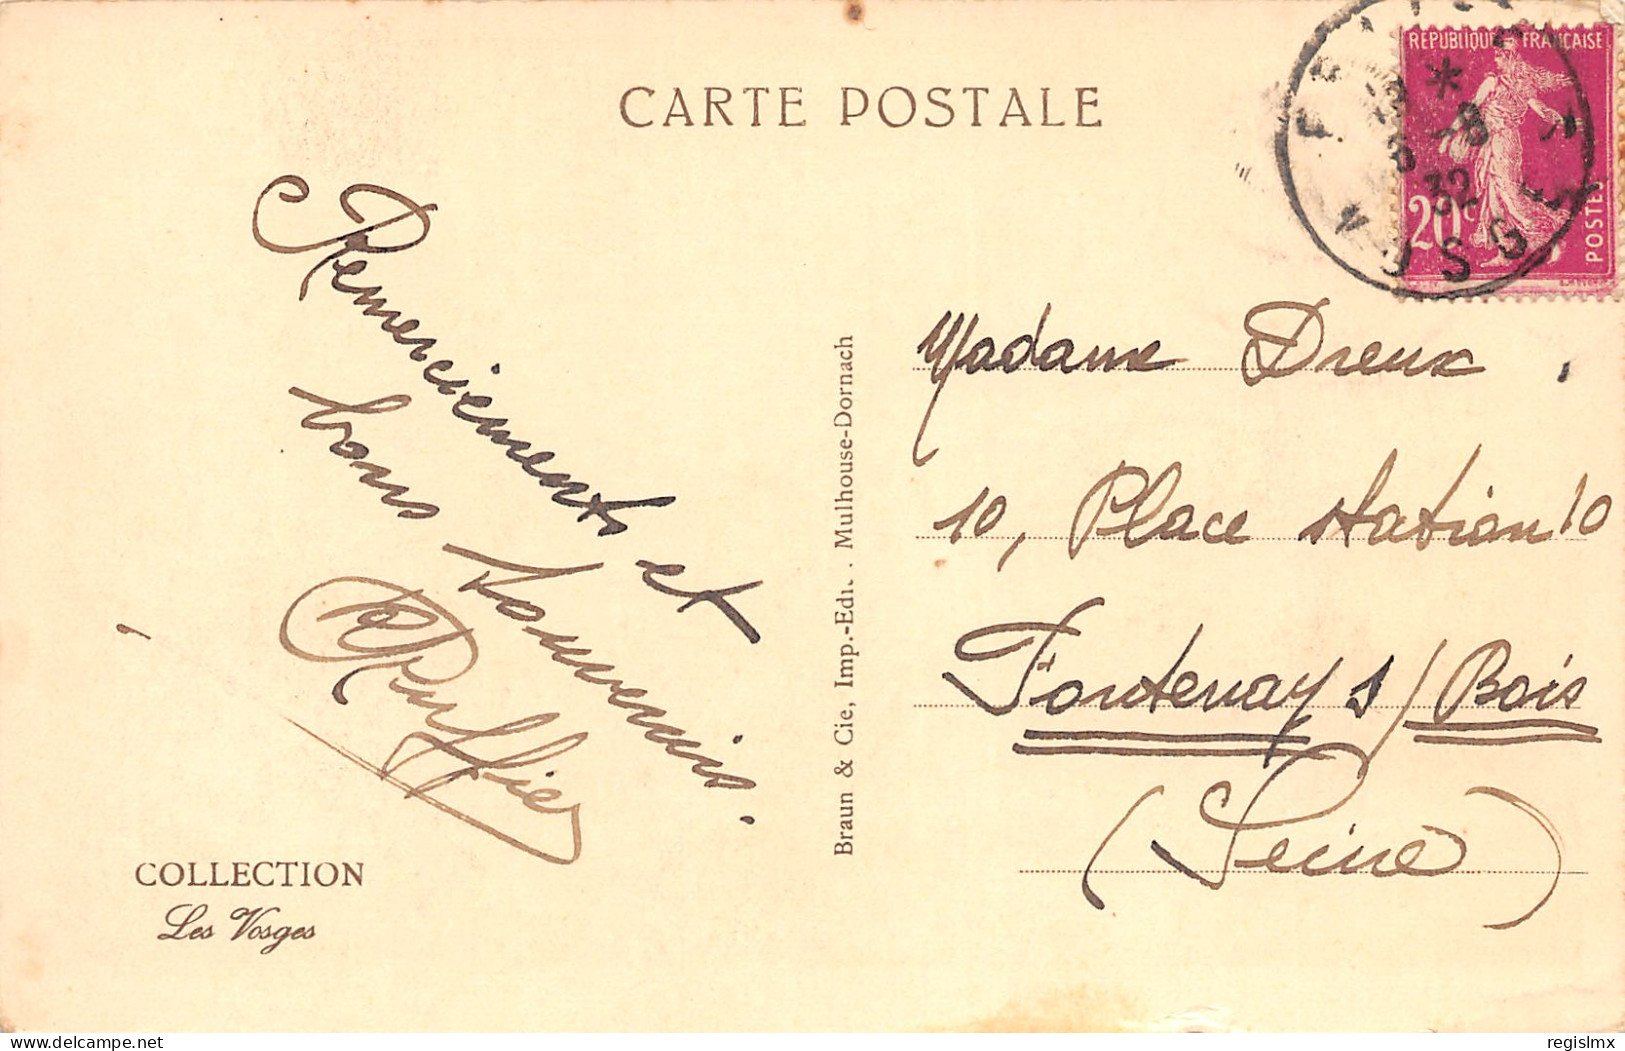 CARTE POSTALE
RÉPUBLIQUE FRANÇAISE
20c
POSTES
* -8
32
Remerciements et
bons souvenirs.
Madame Dreux
10, Place Station 10
Fontenay s/ Bois
(Seine)
Braun & Cie, Imp.-Edit. Mulhouse-Dornach
COLLECTION
Les Vosges
delcampe.net
regislmx